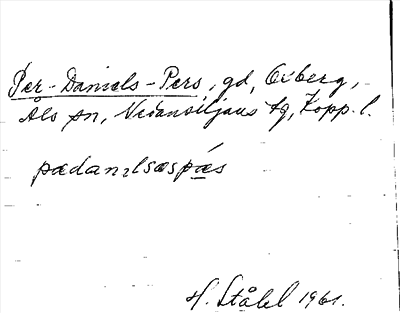 Per-Daniels-Pers, gd, Övberg,
Åls sn, Nedansiljans tg, Kopp. l.
pædanɪlsæspæs
H. Ståhl 1961.